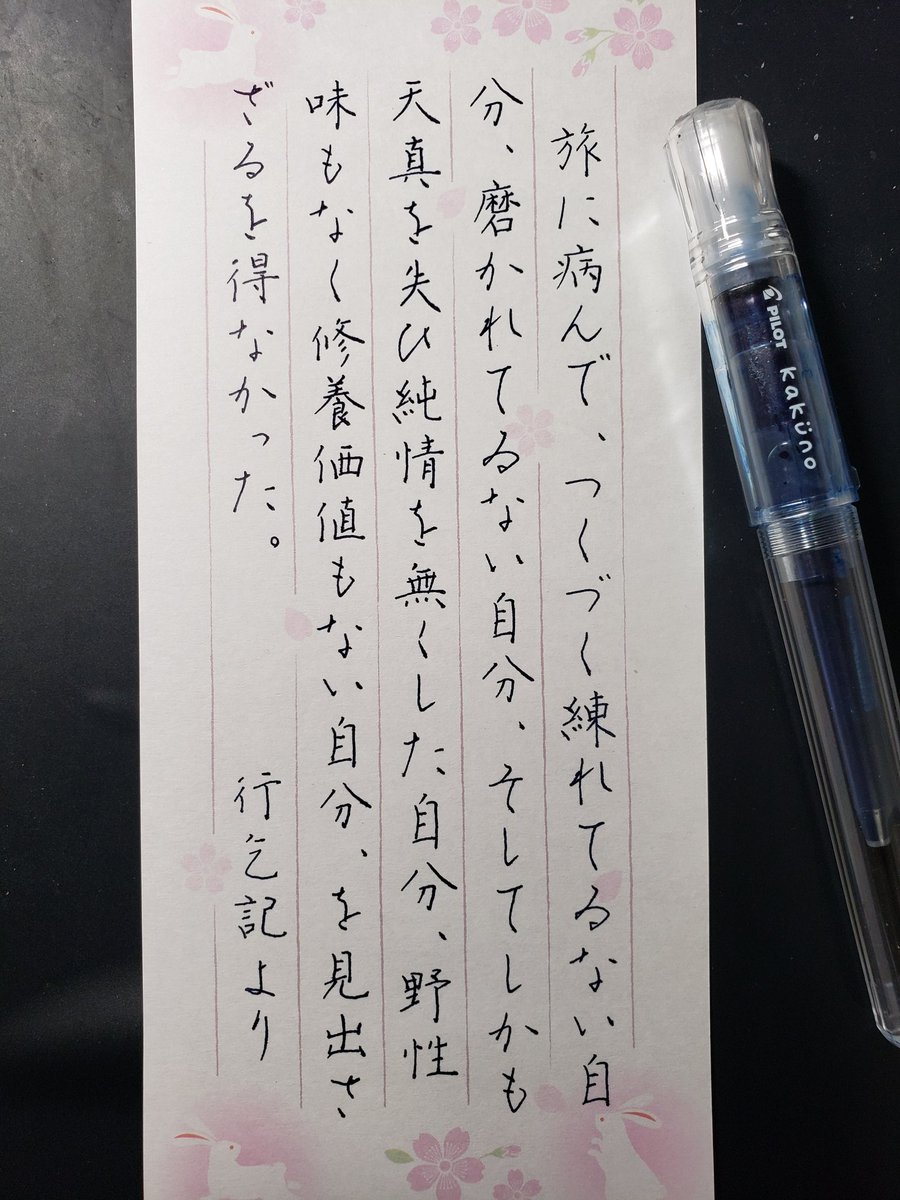 旅に病んで、つくづく練れてゐない自
分、磨かれてゐない自分、そしてしかも
天真を失ひ純情を無くした自分、野性
味もなく修養価値もない自分、を見出さ
ざるを得なかった。　行乞記より
PILOT kaküno